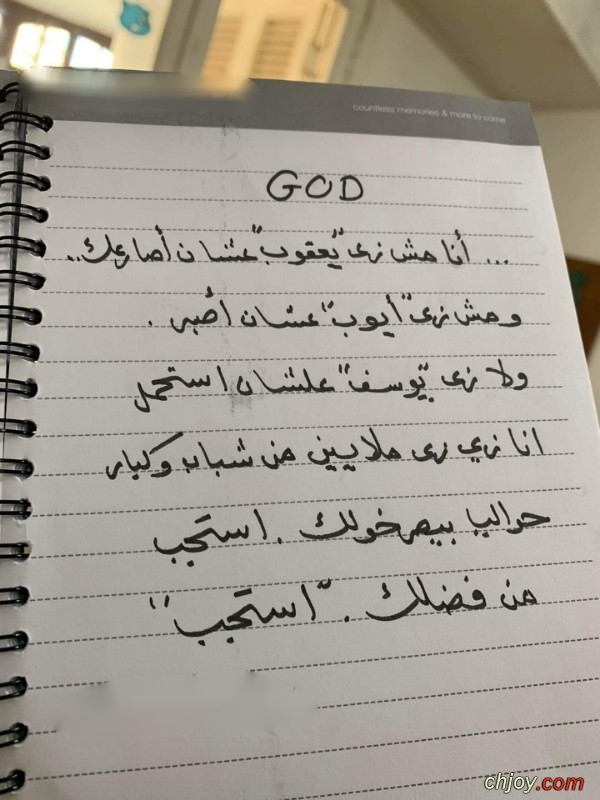 countless memories & more to come
GOD
... أنا مش زى "يعقوب" عشان أصارعك..
ومش زى "أيوب" عشان أصبر .
ولا زى "يوسف" علشان استحمل
انا زي زى ملايين من شباب وكبار
حواليا بيصرخولك . استجب
من فضلك . "استجب"
chjoy.com